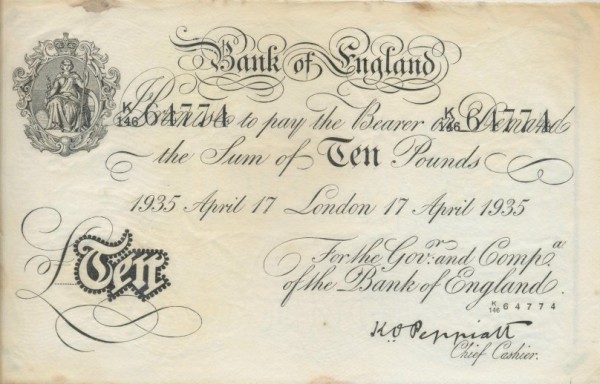 Bank of England
K/146 64774 K/146 64774
I Promise to pay the Bearer on Demand
the Sum of Ten Pounds
1935 April 17 London 17 April 1935
For the Govr. and Compa.
of the Bank of England.
K/146 64774
£Ten
K.O Peppiatt
Chief Cashier.